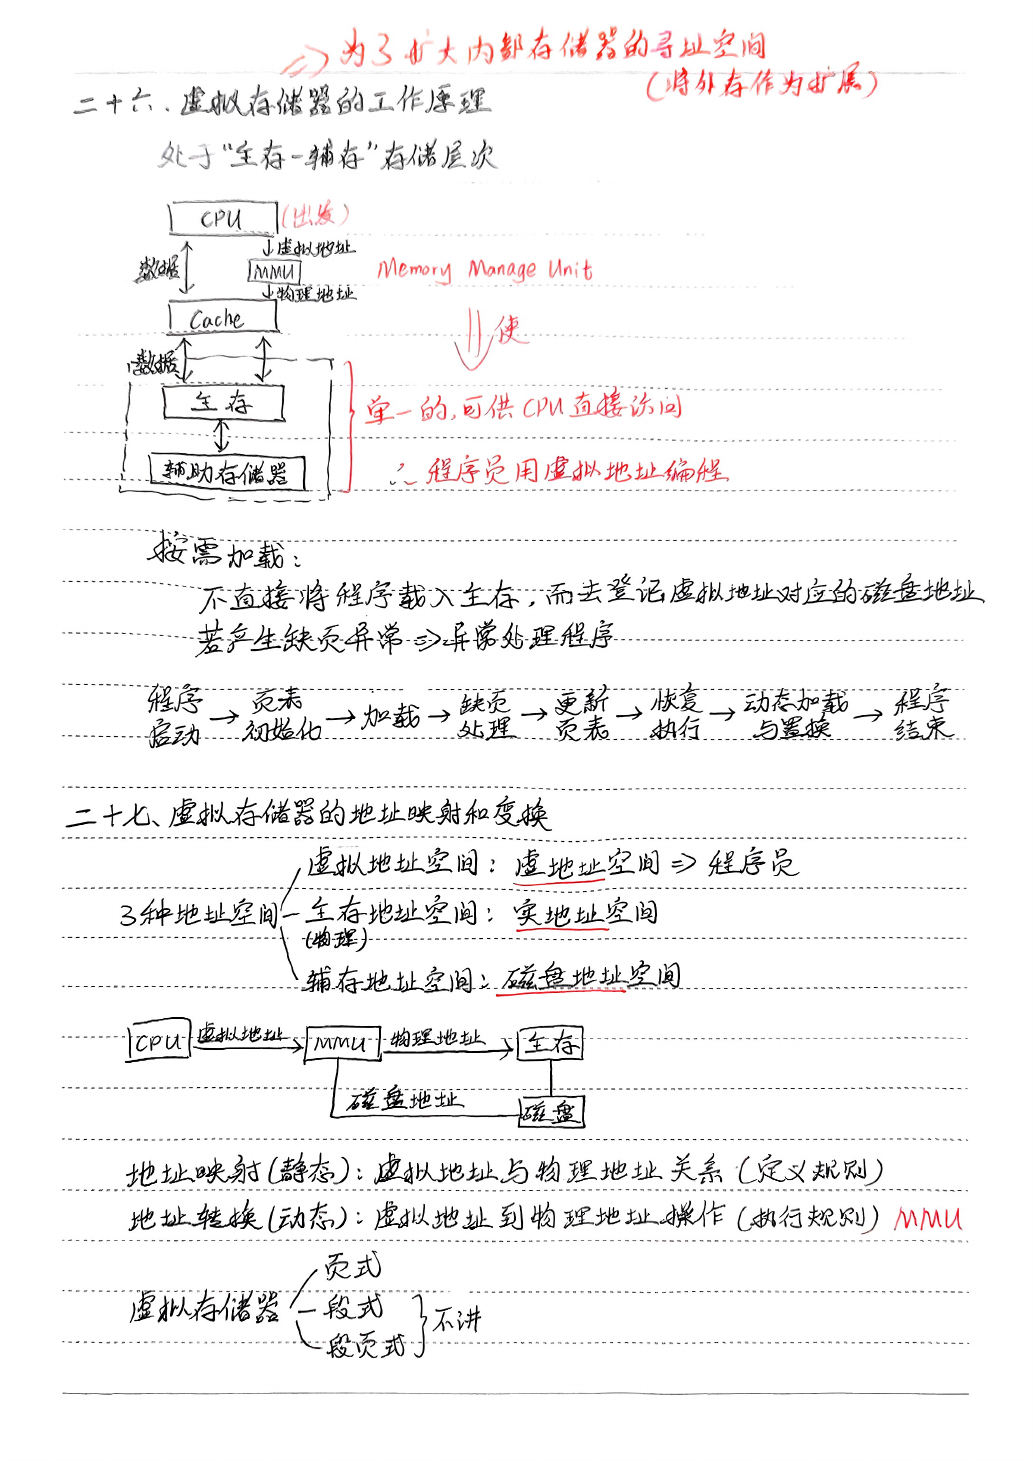 => 为了扩大内部存储器的寻址空间
(将外存作为扩展)
二十六、虚拟存储器的工作原理
处于“主存-辅存”存储层次
CPU (出发)
↓虚拟地址
数据 MMU Memory Manage Unit
↓物理地址
Cache
使
数据
主存 单一的,可供CPU直接访问
辅助存储器 ∴程序员用虚拟地址编程
按需加载:
不直接将程序载入主存,而去登记虚拟地址对应的磁盘地址
若产生缺页异常=>异常处理程序
程序启动→页表初始化→加载→缺页处理→更新页表→恢复执行→动态加载与置换→程序结束
二十七、虚拟存储器的地址映射和变换
虚拟地址空间: 虚地址空间=>程序员
3种地址空间 主存地址空间: 实地址空间
(物理)
辅存地址空间: 磁盘地址空间
CPU 虚拟地址 MMU 物理地址 主存
磁盘地址 磁盘
地址映射(静态): 虚拟地址与物理地址关系(定义规则)
地址转换(动态): 虚拟地址到物理地址操作(执行规则) MMU
页式
虚拟存储器 段式 不讲
段页式